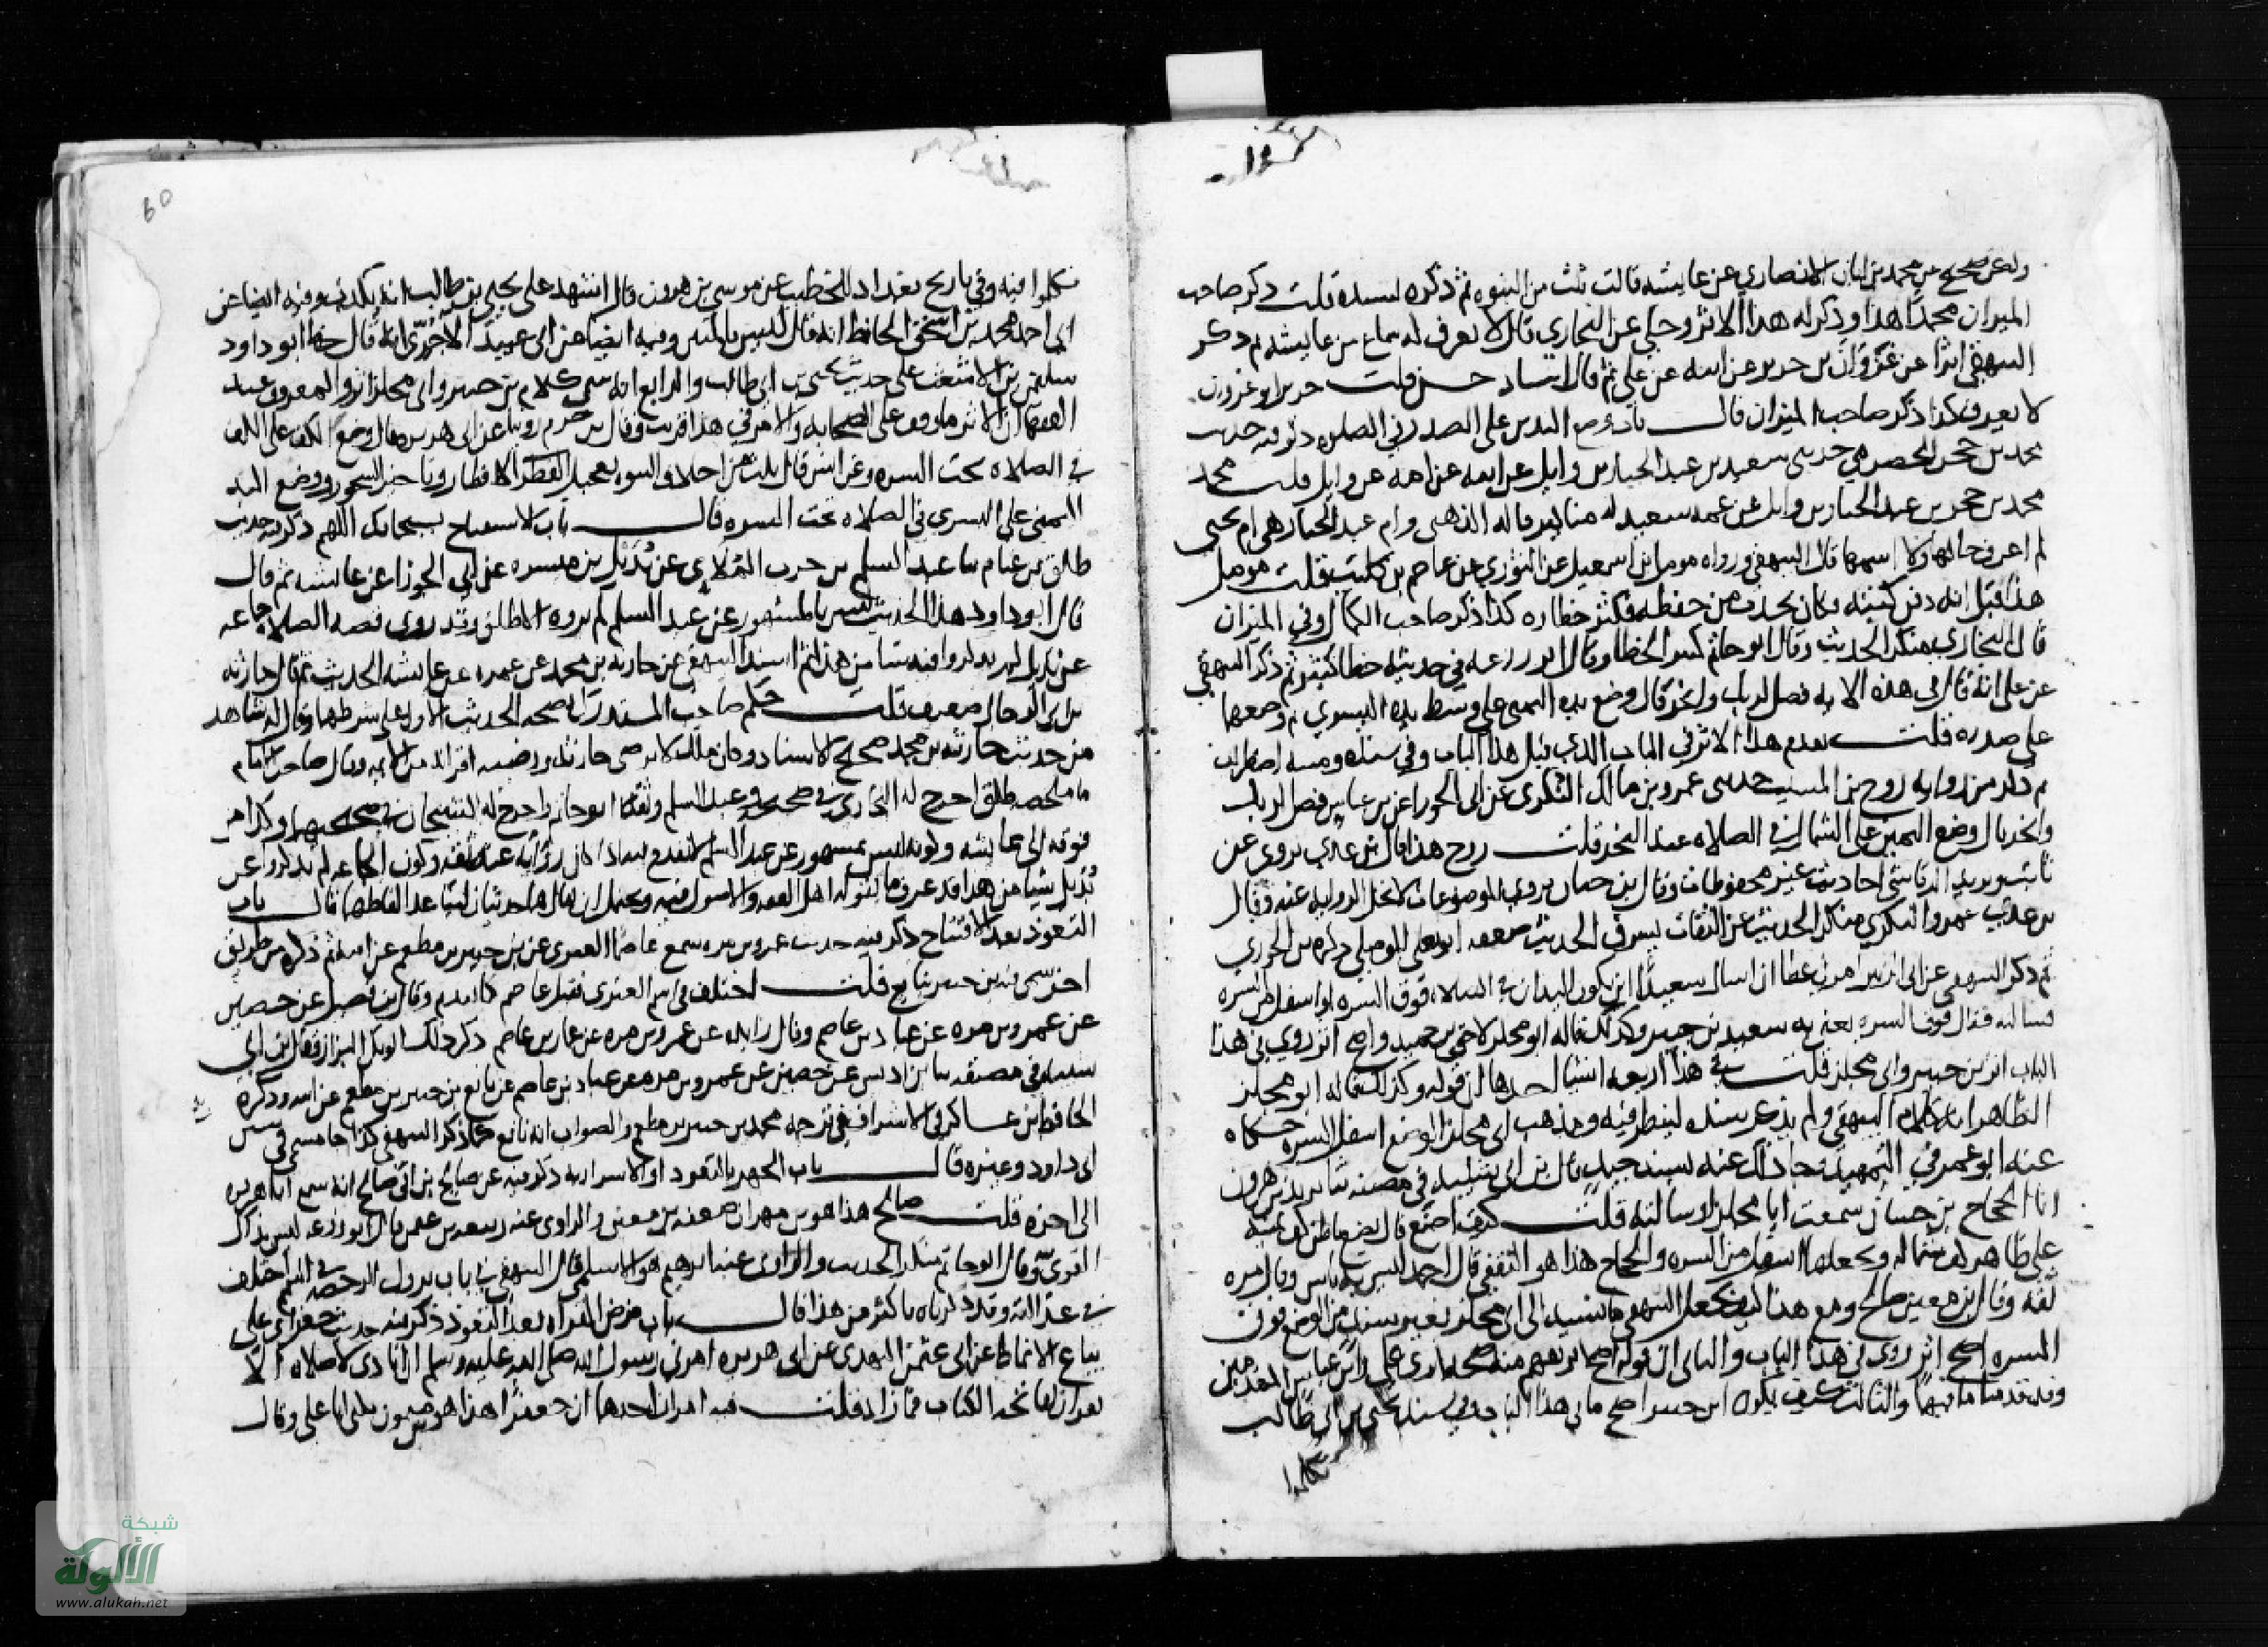 وصح عن محمد بن ابان الانصاري عن عايشه قالت ثلث من النبوه ثم ذكره بسنده قلت ذكر صاحب
الميزان محمدا هذا وذكر له هذا الاثر وحكي عن البخاري قال لا يعرف له سماع من عايشه ثم ذكر
البيهقي اثرا عن غزوان بن جرير عن ابيه عن علي ثم قال اسناد حسن قلت جرير ابو غزوان
لا يعرف كذا ذكر صاحب الميزان قال باب وضع اليدين على الصدر في الصلوه ذكر فيه حديث
محمد بن حجر الحضرمي حدثنى سعيد بن عبد الجبار بن وايل عن ابيه عن امه عن وايل قلت محمد
محمد بن حجر بن عبد الجبار بن وايل عن عمه سعيد له مناكير قاله الذهبى وام عبد الجبار هي ام يحيى
لم اعرف حالها ولا اسمها قال البيهقي ورواه مومل بن اسمعيل عن الثوري عن عاصم بن كليب قلت مومل
هذا قيل انه دفن كتبه فكان يحدث من حفظه فكثر خطاوه كذا ذكر صاحب الكمال وفي الميزان
قال البخاري منكر الحديث وقال ابو حاتم كثير الخطا وقال ابو زرعه في حديثه خطا كثير ثم ذكر البيهقي
عن على انه قال في هذه الايه فصل لربك وانحر قال وضع يده اليمنى على وسط يده اليسري ثم وضعها
على صدره قلت تقدم هذا الاثر في الباب الذي قبل هذا الباب وفي سنده ومتنه اضطراب
ثم ذكر من روايه روح بن المسيب حدثنى عمرو بن مالك النكري عن ابي الجوزا عن ابن عباس فصل لربك
وانحر قال وضع اليمين على الشمال في الصلاه عند النحر قلت روح هذا قال ابن عدي يروي عن
ثابت ويزيد الرقاشي احاديث غير محفوظات وقال ابن حبان يروي الموضوعات لا تحل الروايه عنه وقال
بن عدي عمرو النكري منكر الحديث عن الثقات يسرق الحديث ضعفه ابو يعلى الموصلي ذكره ابن الجوزي
ثم ذكر البيهقي عن ابي الزبير امرني عطا ان اسال سعيدا اين يكون اليدان في الصلاه فوق السره او اسفل من السره
فسالته فقال فوق السره يعنى به سعيد بن جبير وكذلك قاله ابو مجلز لاحق بن حميد واصح اثر روي في هذا
الباب اثر ابن جبير وابي مجلز قلت في هذا اربعه اشيا احدها ان قوله وكذلك قاله ابو مجلز
الظاهر انه كلام البيهقي ولم يذكر سنده لينظر فيه ومذهب ابي مجلز الوضع اسفل السره حكاه
عنه ابو عمر في التمهيد وجا ذلك عنه بسند جيد قال ابن ابي شيبه في مصنفه ثنا يزيد بن هرون
انا الحجاج بن حسان سمعت ابا مجلز او سالته قلت كيف اصنع قال يضع باطن كف يمينه
على ظاهر كف شماله ويجعلها اسفل من السره والحجاج هذا هو الثقفي قال احمد ليس به باس وقال مره
ثقه وقال ابن معين صالح ومع هذا كيف يجعل البيهقي ما نسبه الى ابي مجلز بغير سند من الوضع فوق
السره اصح اثر روي في هذا الباب والثاني ان قوله اصح اثر يفهم منه صحه ما روى عن علي وابن عباس المتقدمين
وقد قدمنا ما فيهما والثالث كيف يكون اثر ابن جبير اصح ما في هذا الباب وفي سنده يحيى بن ابي طالب
تكلموا
تكلموا فيه وفي تاريخ بغداد للخطيب عن موسى بن هرون قال اشهد على يحيى بن ابي طالب انه يكذب وفيه ايضا عن
ابي احمد محمد بن اسحق الحافظ انه قال ليس بالمتين وفيه ايضا عن ابي عبيد الاجري انه قال خط ابو داود
سليمن بن الاشعث على حديث يحيى بن ابي طالب والرابع انه سمى كلام بن جبير وابي مجلز اثرا والمعروف عند
الفقها ان الاثر ما وقف على الصحابه والامر في هذا قريب وقال بن حزم روينا عن ابي هريره قال وضع الكف على الكف
في الصلاه تحت السره وعن انس قال ثلث من اخلاق النبوه تعجيل الافطار وتاخير السحور ووضع اليد
اليمنى على اليسرى في الصلاه تحت السره قال باب الاستفتاح بسبحانك اللهم ذكر فيه حديث
طلق بن غنام ثنا عبد السلم بن حرب الملائي عن بديل بن ميسره عن ابي الجوزا عن عايشه ثم قال
قال ابو داود هذا الحديث ليس بالمشهور عن عبد السلم لم يروه الا طلق وقد روى قصه الصلاه جماعه
عن بديل لم يذكروا فيه شيا من هذا ثم اسند البيهقي عن حارثه بن محمد عن عمره عن عايشه الحديث ثم قال حارثه
بن ابي الرجال ضعيف قلت حكم صاحب المستدرك بصحه الحديث الاول على شرطهما وقال له شاهد
من حديث حارثه بن محمد صحيح الاسناد وكان ملك لا يرضى حارثه ورضيه اقرانه من الايمه وقال صاحب الامام
ما ملخصه طلق اخرج له البخارى في صحيحه وعبد السلم وثقه ابو حاتم واخرج له الشيخان في صحيحيهما وكذا من
فوقه الى عايشه وكونه ليس بمشهور عن عبد السلم لا يقدح فيه اذا كان راويه عنه ثقه وكون الجماعه لم يذكروا عن
بديل شيا من هذا قد عرف ما يقوله اهل الفقه والاصول فيه ويحتمل ان يقال هما حديثان لتباعد الفاظهما قال باب
التعوذ بعد الافتتاح ذكر فيه حديث عمرو بن مره سمع عاصما العنزي عن ابن جبير بن مطعم عن ابيه ثم ذكره من طريق
اخر سمى فيه ابن جبير نافع قلت اختلف في اسم العنزى فقيل عاصم كما تقدم وقال ابن فضيل عن حصين
عن عمرو بن مره عن عباد بن عاصم وقال زايده عن عمرو بن مره عن عمار بن عاصم ذكر ذلك ابو بكر البزار وقال ابن ابي
شيبه في مصنفه ثنا بن ادريس عن حصين عن عمرو بن مره عن عباد بن عاصم عن نافع بن جبير بن مطعم عن ابيه وذكره
الحافظ ابن عساكر في الاشراف في ترجمه محمد بن جبير بن مطعم والصواب انه نافع كما ذكر البيهقي كذا جا مسمى في سنن
ابى داود وغيره قال باب الجهر بالتعوذ او الاسرار به ذكر فيه عن صالح بن ابي صالح انه سمع ابا هريره
الى اخره قلت صالح هذا هو بن مهران ضعفه بن معين والراوى عنه ربيعه بن عثمن قال ابو زرعه ليس بذاك
القوي وقال ابو حاتم منكر الحديث والراوى عنه ابرهيم هو الاسلمي قال البيهقي في باب نزول الرخصه في التيمم اختلف
في عدالته وقد ذكرناه باكثر من هذا قال باب فرض القراه بعد التعوذ ذكر فيه حديث جعفر ابي علي
بياع الانماط عن ابي عثمن النهدي عن ابي هريره امرني رسول الله صلى الله عليه وسلم ان انادى لا صلاه الا
بقران بفاتحه الكتاب فما زاد قلت فيه امران احدهما ان جعفرا هذا هو بن ميمون يكنى ابا على وقال